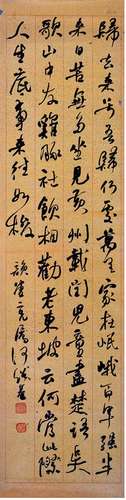 歸去來兮吾歸何處萬里家在岷峨百年强半
来日苦無多坐見黄州載閏兒童盡楚語吴
歌山中友雞豚社飲相勸老東坡云何當此際
人生底事來往如梭